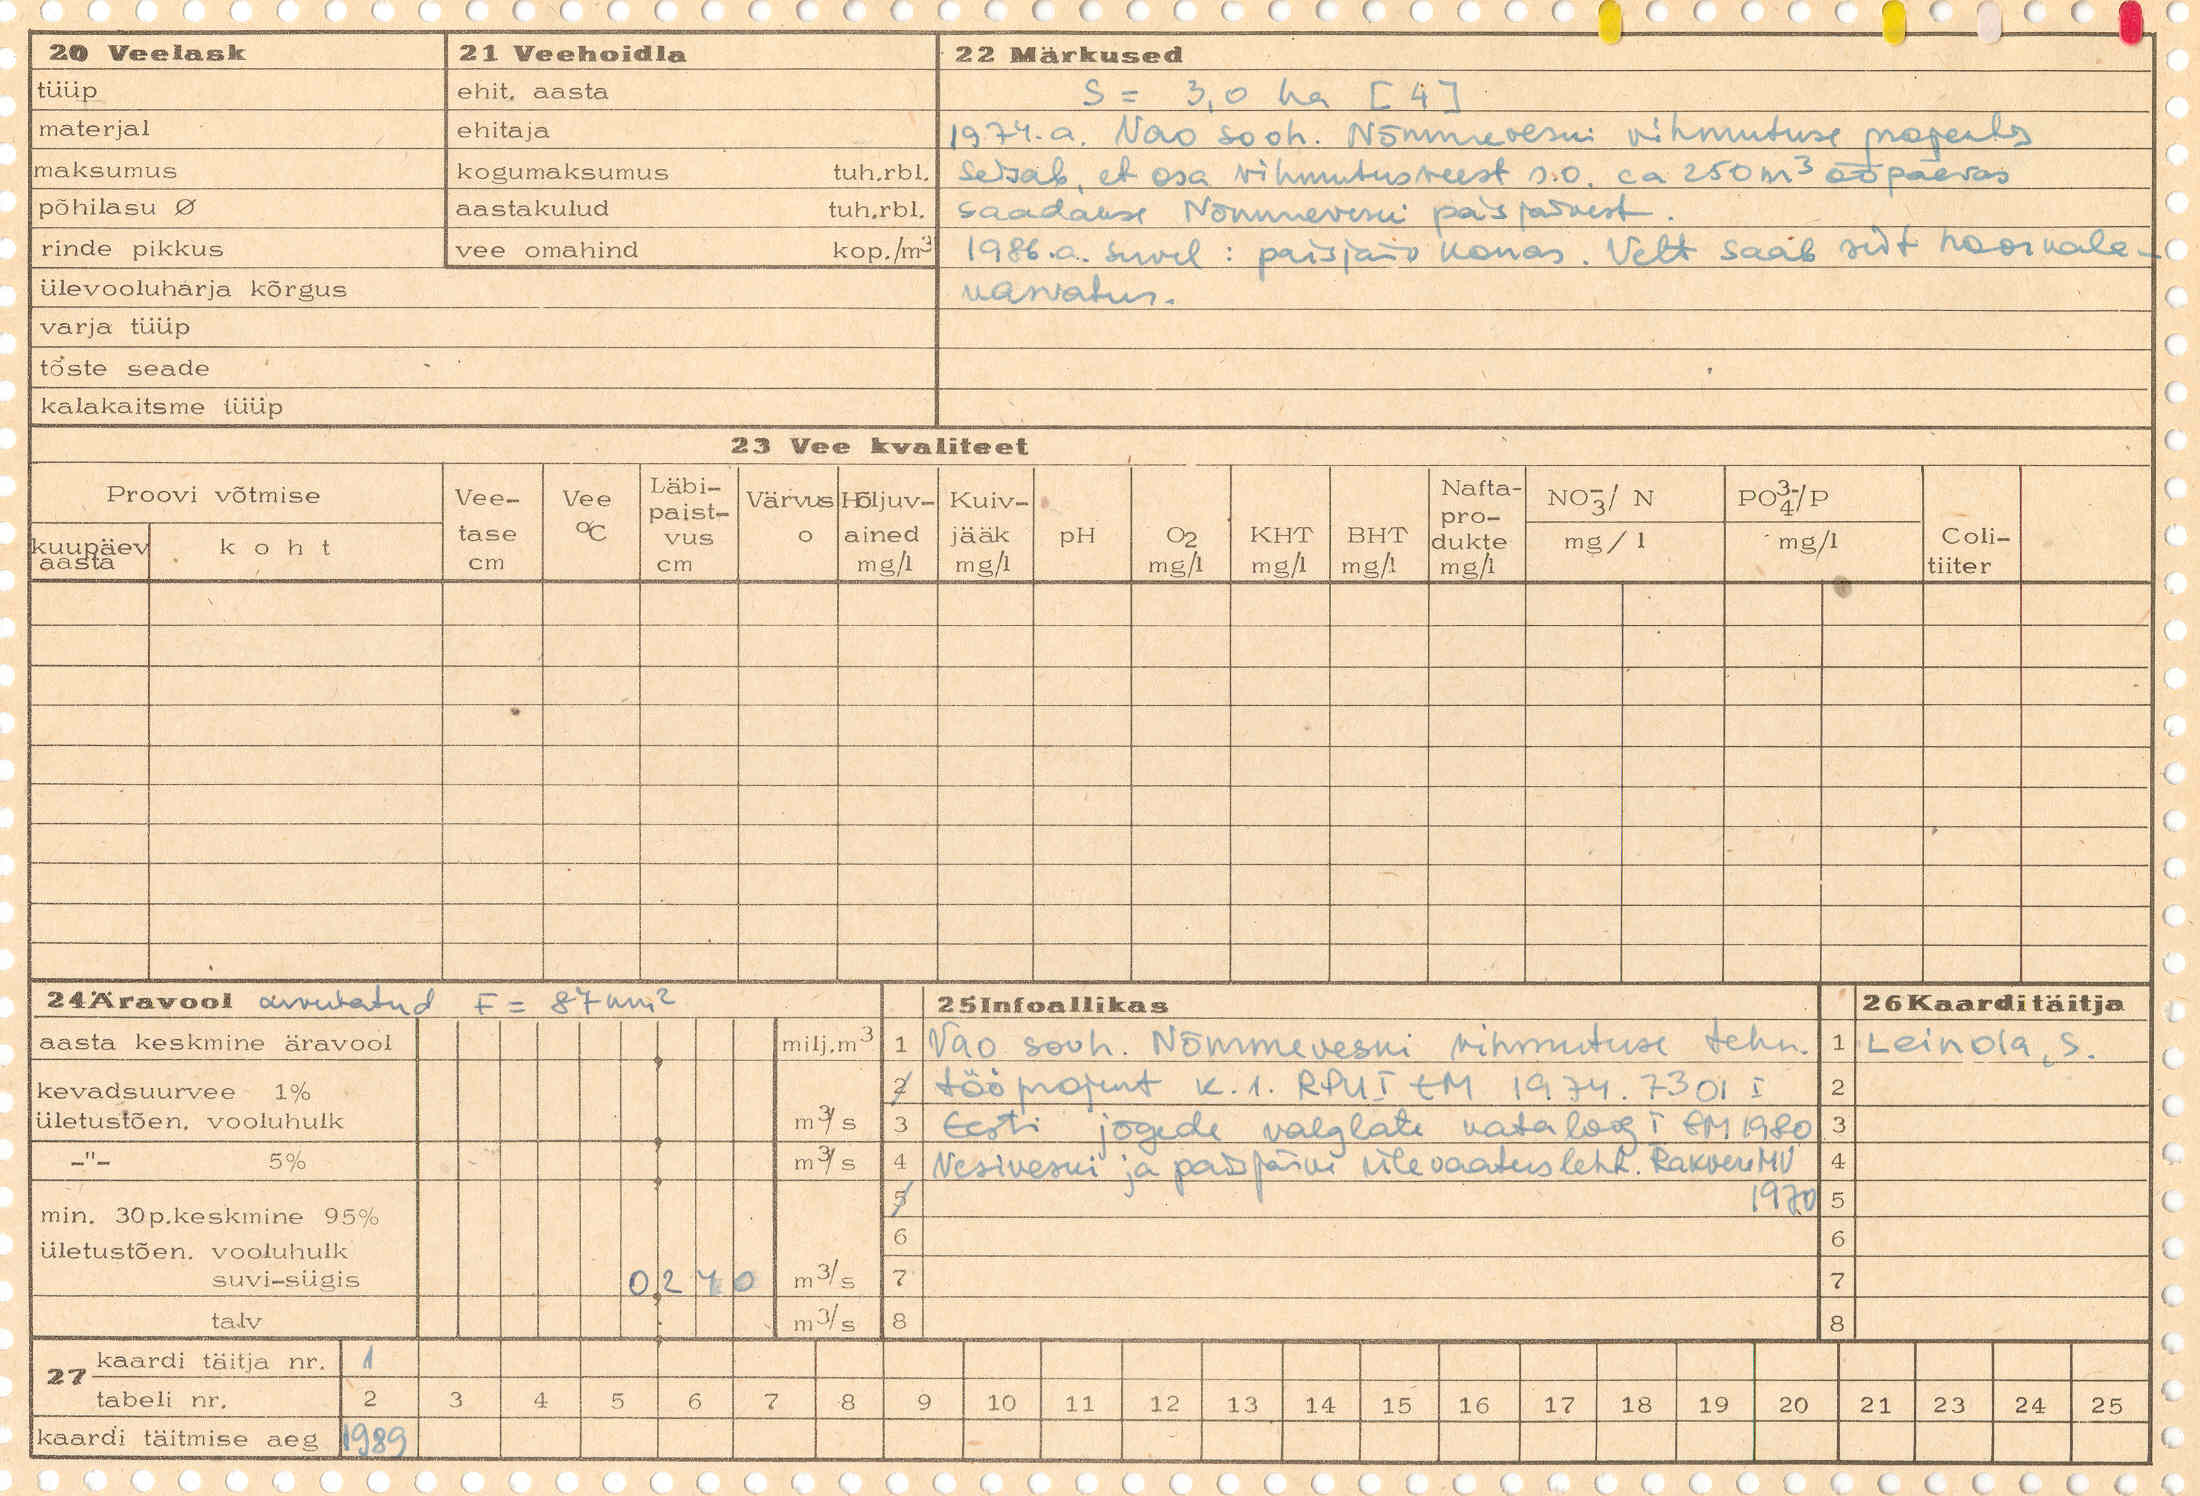 20 Veelask
tüüp
materjal
maksumus
põhilasu Ø
rinde pikkus
ülevooluharja kõrgus
varja tüüp
tõste seade
kalakaitsme tüüp
21 Veehoidla
ehit. aasta
ehitaja
kogumaksumus tuh.rbl.
aastakulud tuh.rbl.
vee omahind kop./m³
22 Märkused
S = 3,0 ha [4]
1974.a. Vao sovh. Nõmmeveski vihmutuse projektis
seisab, et osa vihmutusveest s.o. ca 250 m³ ööpäevas
saadakse Nõmmeveski paisjärvest.
1986.a. suvel : paisjärv korras. Velt saab siit noorkala-
kasvatus.
23 Vee kvaliteet
Proovi võtmise
kuupäev aasta
koht
Vee-tase cm
Vee °C
Läbi-paist-vus cm
Värvus o
Hõljuv-ained mg/l
Kuiv-jääk mg/l
pH
O2 mg/l
KHT mg/l
BHT mg/l
Nafta-pro-dukte mg/l
NO3⁻/ N mg/l
PO4³⁻/P mg/l
Coli-tiiter
24 Äravool arvutatud F = 87 km²
aasta keskmine äravool milj.m³
kevadsuurvee 1%
ületustõen. vooluhulk m³/s
-"- 5% m³/s
min. 30p.keskmine 95%
ületustõen. vooluhulk
suvi-sügis 0,270 m³/s
talv m³/s
25 Infoallikas
1 Vao sovh. Nõmmeveski vihmutuse tehn.
2 tööprojekt k.1. RPUI EM 1974. 7301 I
3 Eesti jõgede valglate kataloog I EM 1980
4 Vesiveski ja paisjärve ülevaatusleht. Rakvere MV
5 1970
6
7
8
26 Kaarditäitja
1 Leinola, S.
2
3
4
5
6
7
8
27 kaardi täitja nr. 1
tabeli nr. 2 3 4 5 6 7 8 9 10 11 12 13 14 15 16 17 18 19 20 21 23 24 25
kaardi täitmise aeg 1989